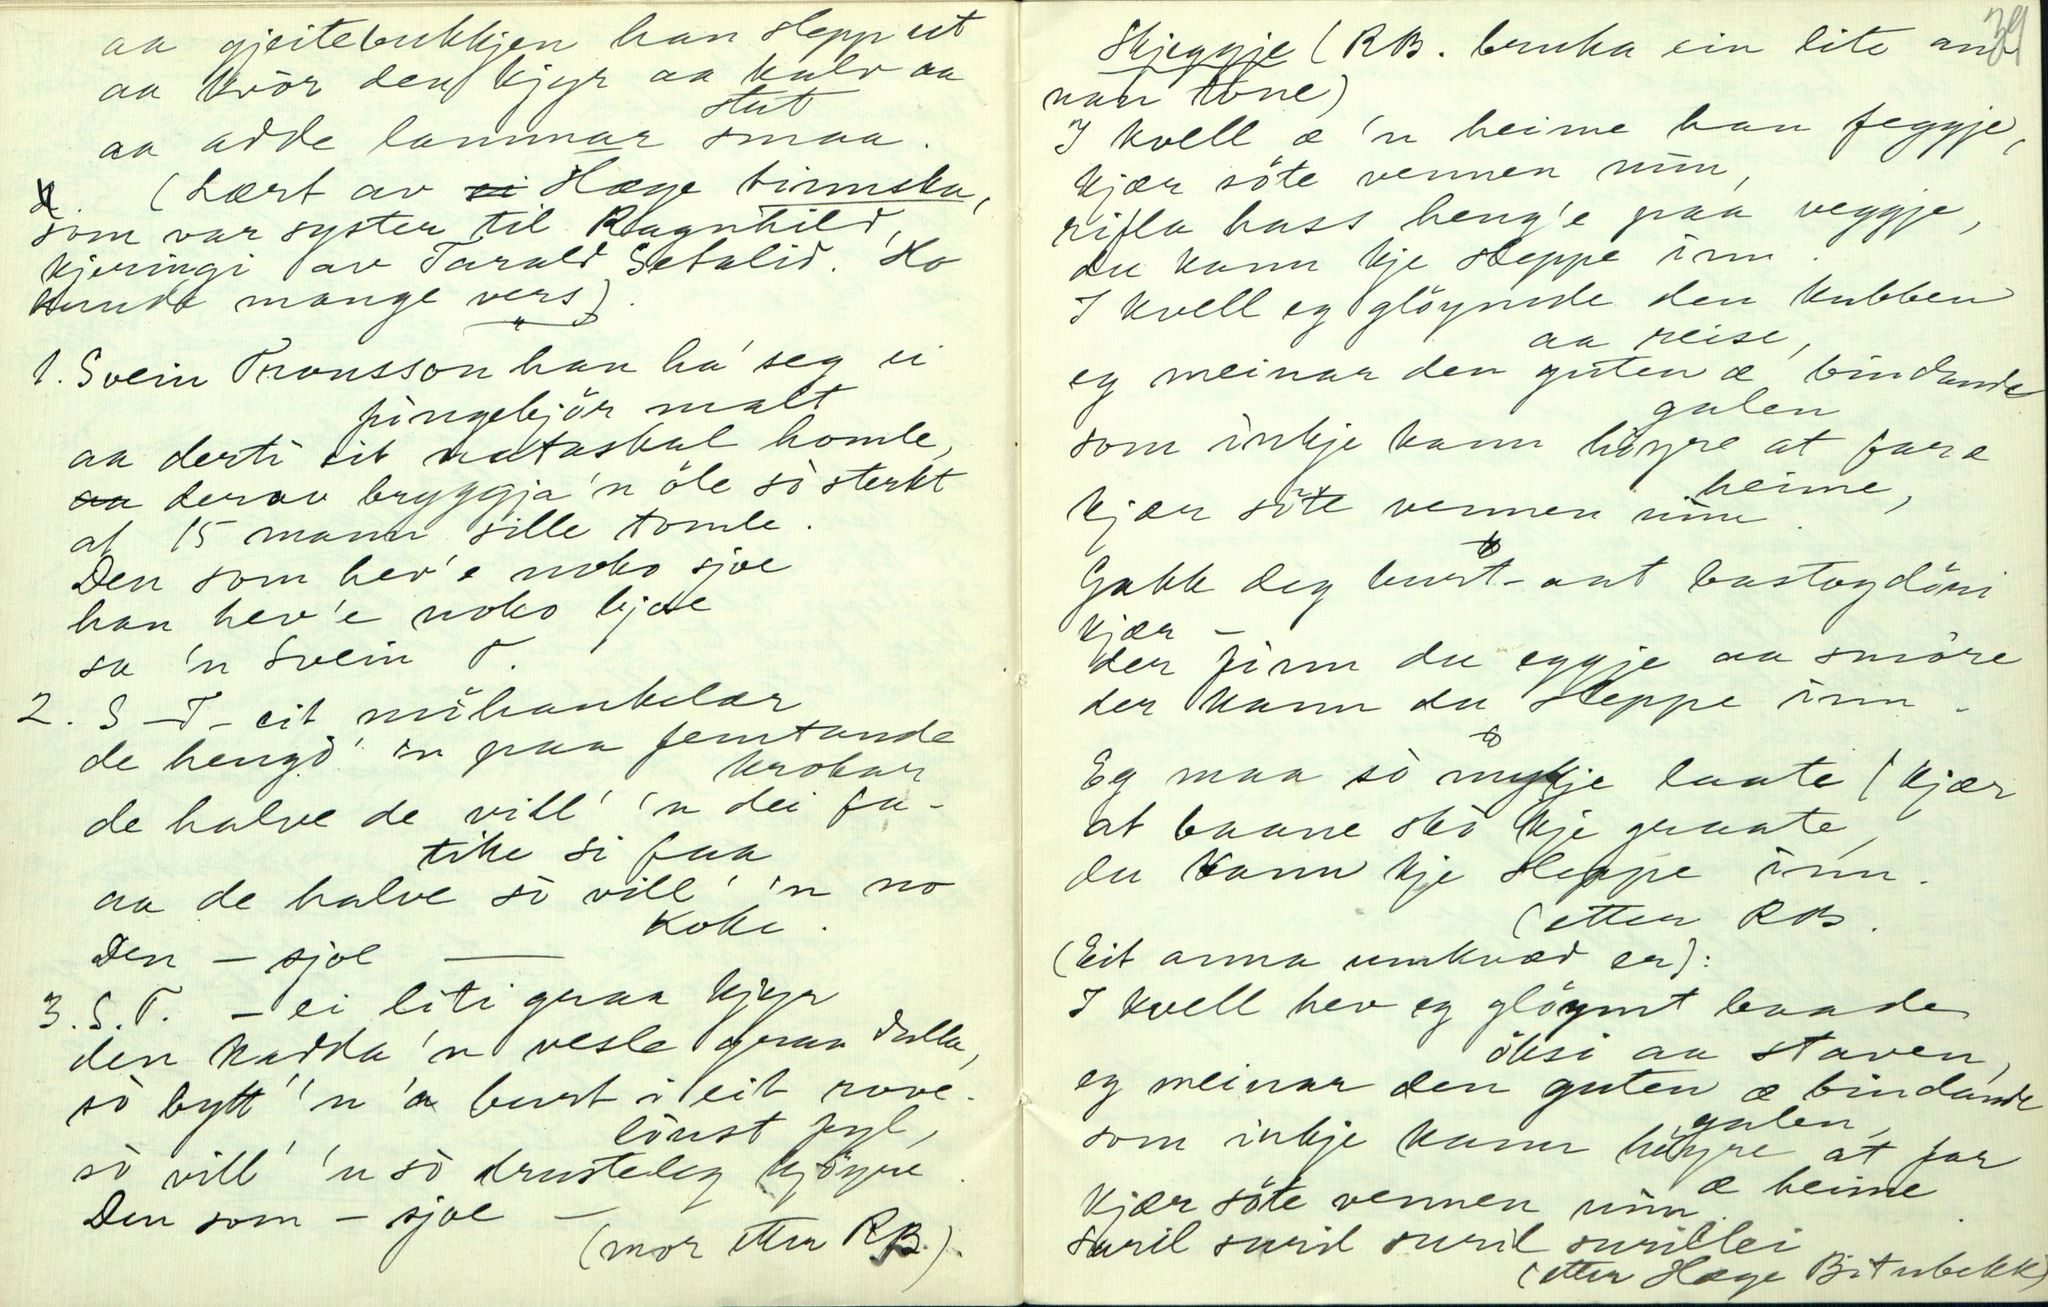 aa gjeitebukkjen han slepp ut
aa kvòr den kjyr aa kalv aa
stut
aa adde lammar smaa.
(Lært av Hæge Finnska,
som var syster til Ragnhild,
kjeringi av Tarald Setalid. Ho
kunda mange vers).
1. Svein Tronsson han ha' seg ei
fingebjör malt
aa derti eit nataskal homle,
derav bryggja 'n öle sò sterkt
at 15 mann sille tomle.
Den som hev'e noko sjoe
han hev'e noko kjöe
sa 'n Svein T.
2. S - T - eit
de hengd' 'n paa femtande
krokar
de halve de vill' 'n dei fa-
tike si faa
aa de halve sò vill' 'n no
koke.
Den - sjoe ——
3. S. T. - ei liti graa kjyr
den kadda 'n vesle graa dalla,
sò bytt' 'n 'a burt i eit rove-
löust fyl,
sò vill' 'n sò drusteleg kjöyre.
Den som - sjoe —
(mor etter RB.).
39
Skjeggje (RB. bruka ein lite an-
nan tone)
I kvell æ 'n heime han feggje,
kjær söte vennen min,
rifla hass heng'e paa veggje,
du kann kje sleppe inn.
I kvell eg glöymde den kubben
aa reise,
eg meinar den guten æ bindande
galen
som inkje kann höyre at far æ
heime,
kjær söte vennen min.
Gakk deg burt-aat bastogdöri
kjær -
der finn du eggje aa smöre
der kann du sleppe inn.
Eg maa sò mykje laate (kjær
at baane skò kje graate,
du kann kje sleppe inn.
(etter RB.
(Eit anna umkvæd er):
I kvell hev eg glöymt baade
öksi aa staven,
eg meinar den guten æ bindande
galen,
som inkje kann höyre at far
æ heime.
kjær söte vennen min.
Suril suril suril surillei
(etter Hæge Bitnbekk)